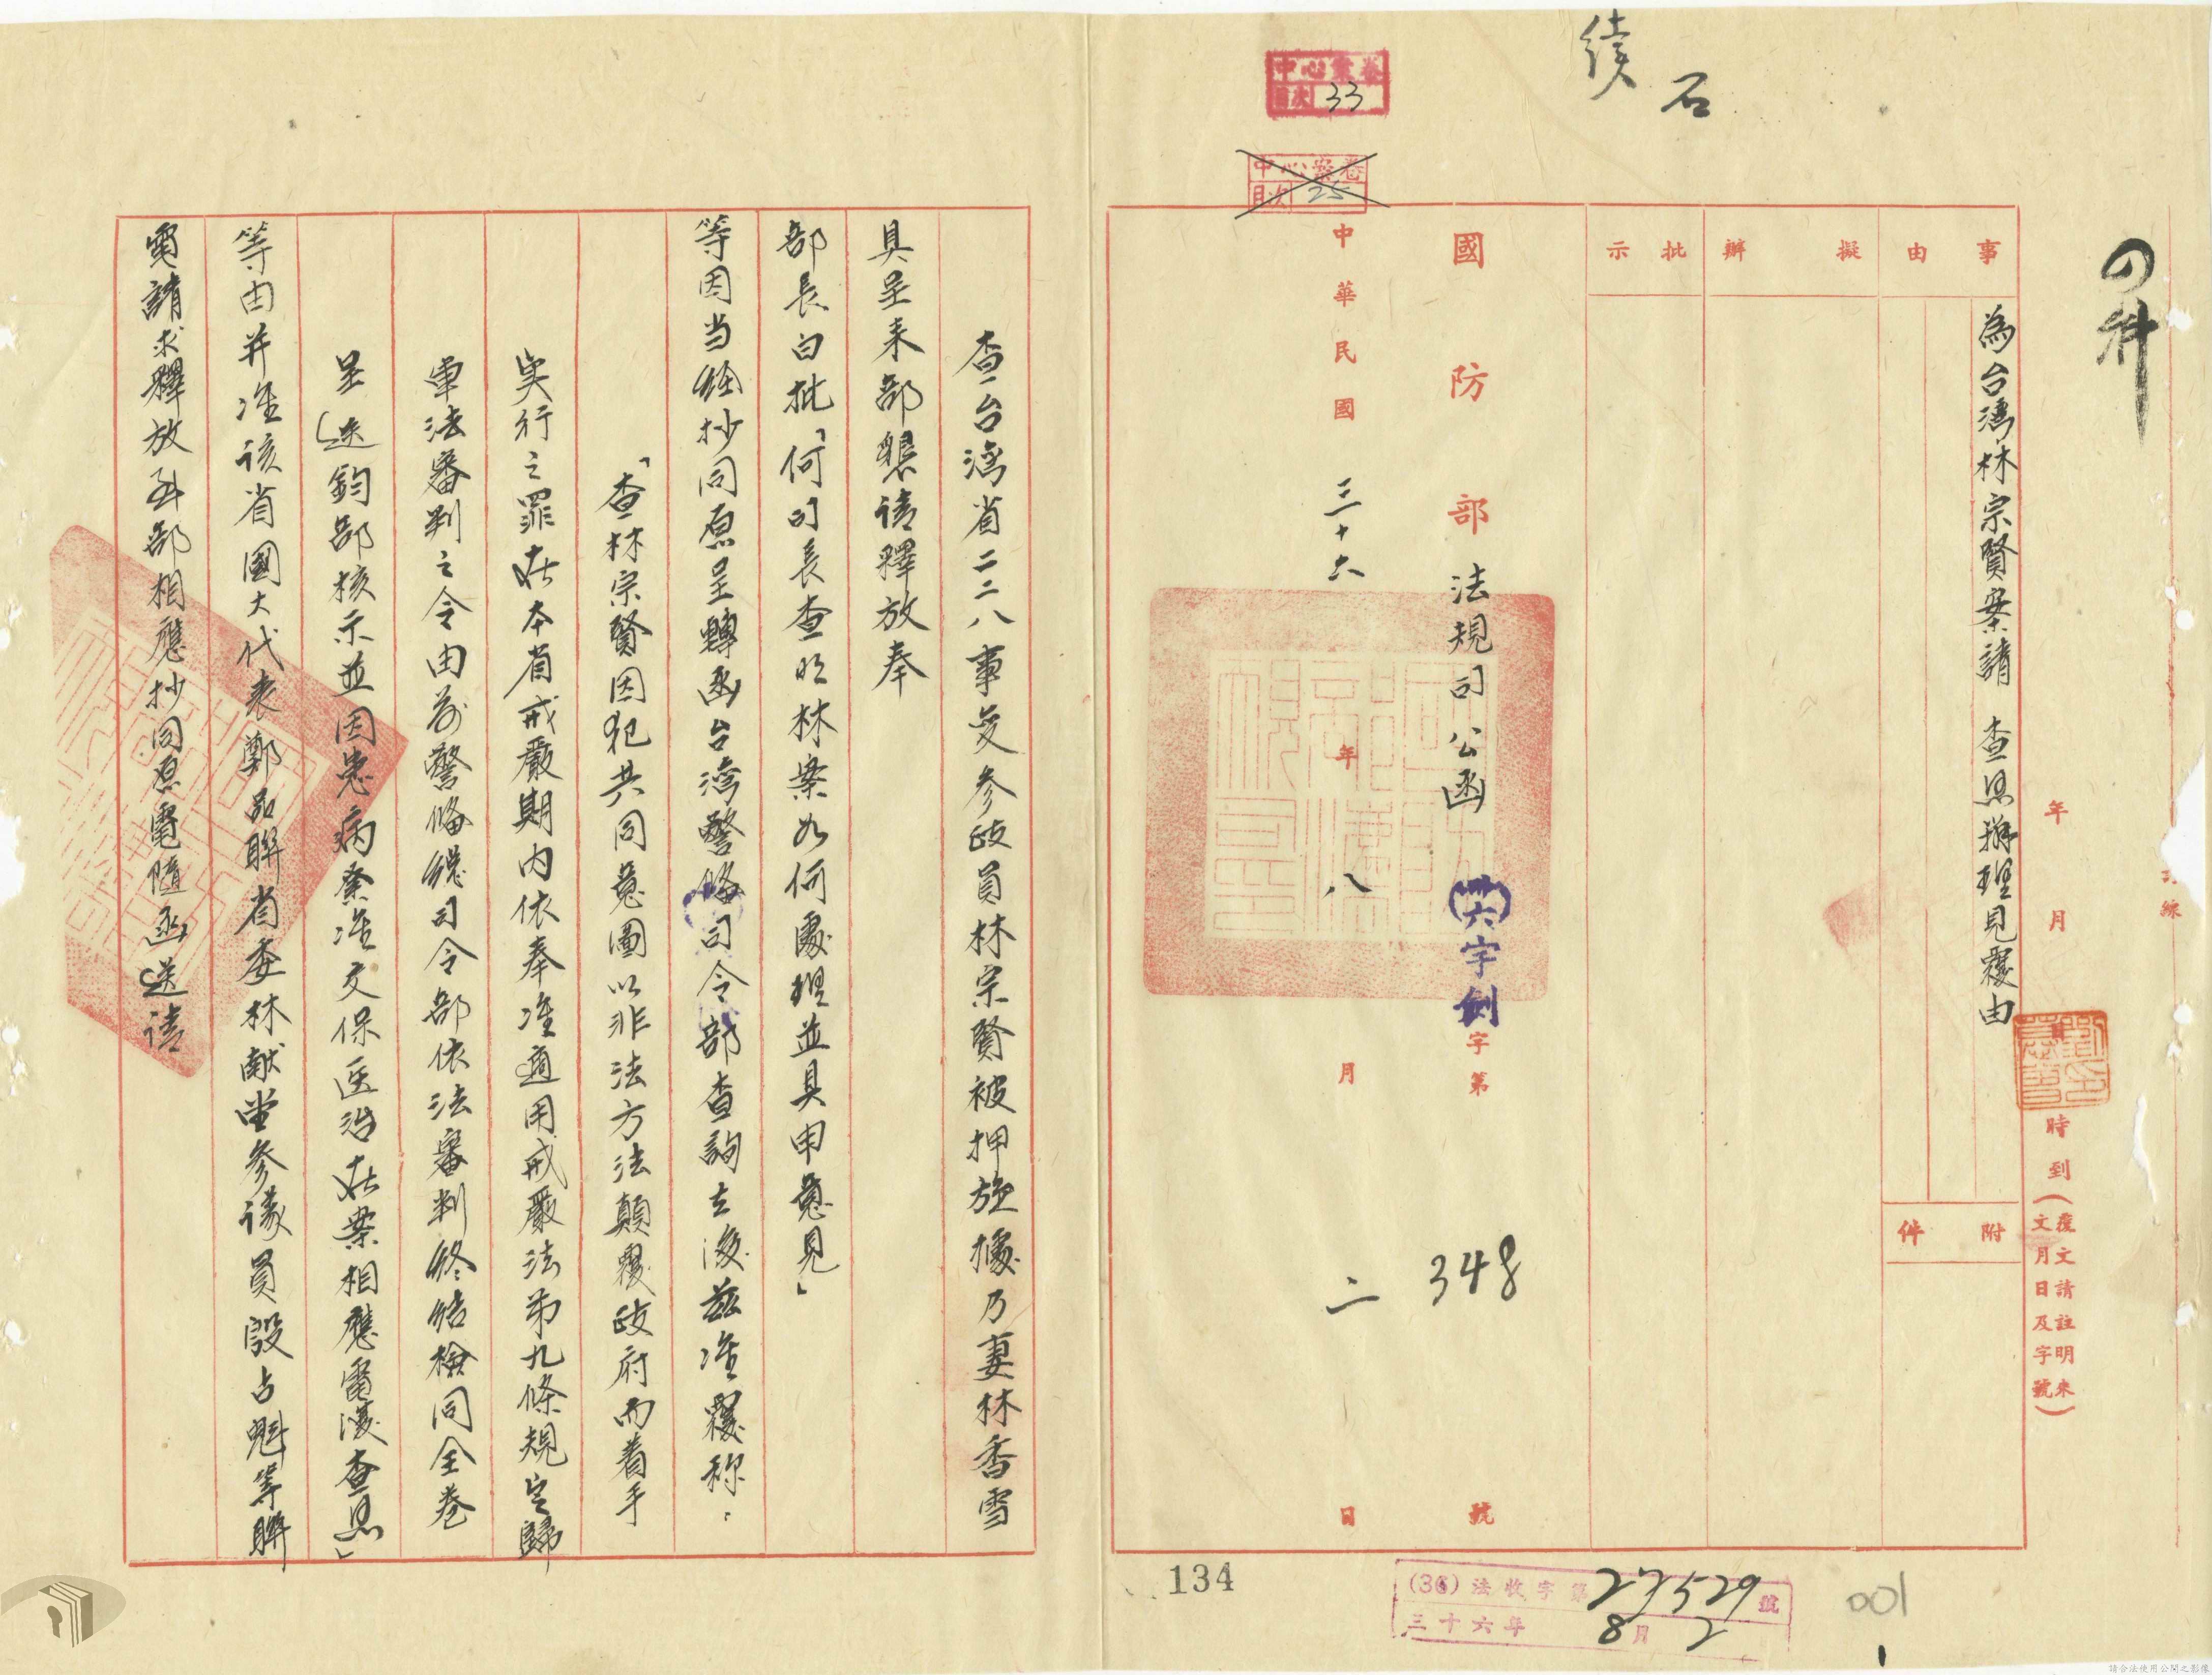 續
石
中心案卷
目次 33
中心案卷
目次 25
四科
年 月 日 時到(覆文請註明來文月日及字號)
事由
為台灣林宗賢案請 查照辦理見覆由
附件
擬辦
批示
國防部法規司公函 (卅六)宇劍字第 348 號
中華民國 三十六 年 八 月 二 日
查台灣省二二八事变参政員林宗賢被押旋據乃妻林香雪
具呈来部懇請釋放奉
部長白批「何司長查明林案如何處理並具申意見」
等因当经抄同原呈轉函台灣警備司令部查詢去後茲准覆称:
「查林宗賢因犯共同意圖以非法方法顛覆政府而着手
实行之罪在本省戒嚴期内依奉准適用戒嚴法第九條規定歸
軍法審判之令由前警备總司令部依法審判終結檢同全卷
呈送鈞部核示並因患病奉准交保医治在案相應電復查照」
等由并准該省國大代表鄭品聯省委林献堂參議員殷占魁等聯
電請求釋放到部相應抄同原電隨函送請
134
(36)法收字第27529號
三十六年 8月 2
001
1
請合法使用公開之影像